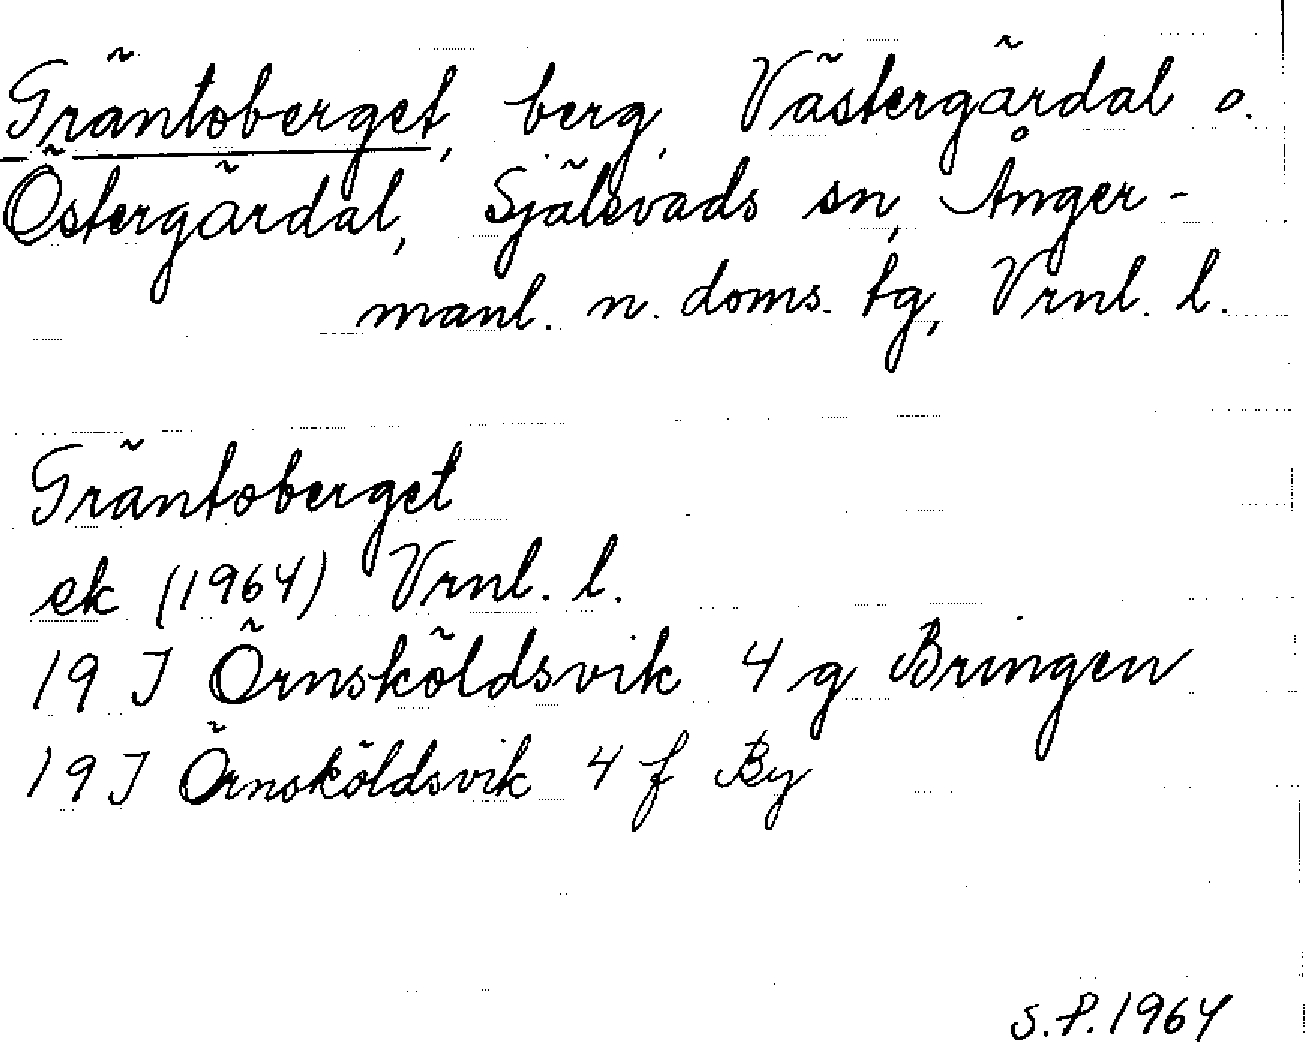 Gräntoberget, berg, Västergärdal o.
Östergärdal, Själevads sn, Ånger-
manl. n. doms. tg, Vrnl. l.
Gräntoberget
ek (1964) Vrnl. l.
19 J Örnsköldsvik 4 g Bringen
19 J Örnsköldsvik 4 f By
S.P. 1964